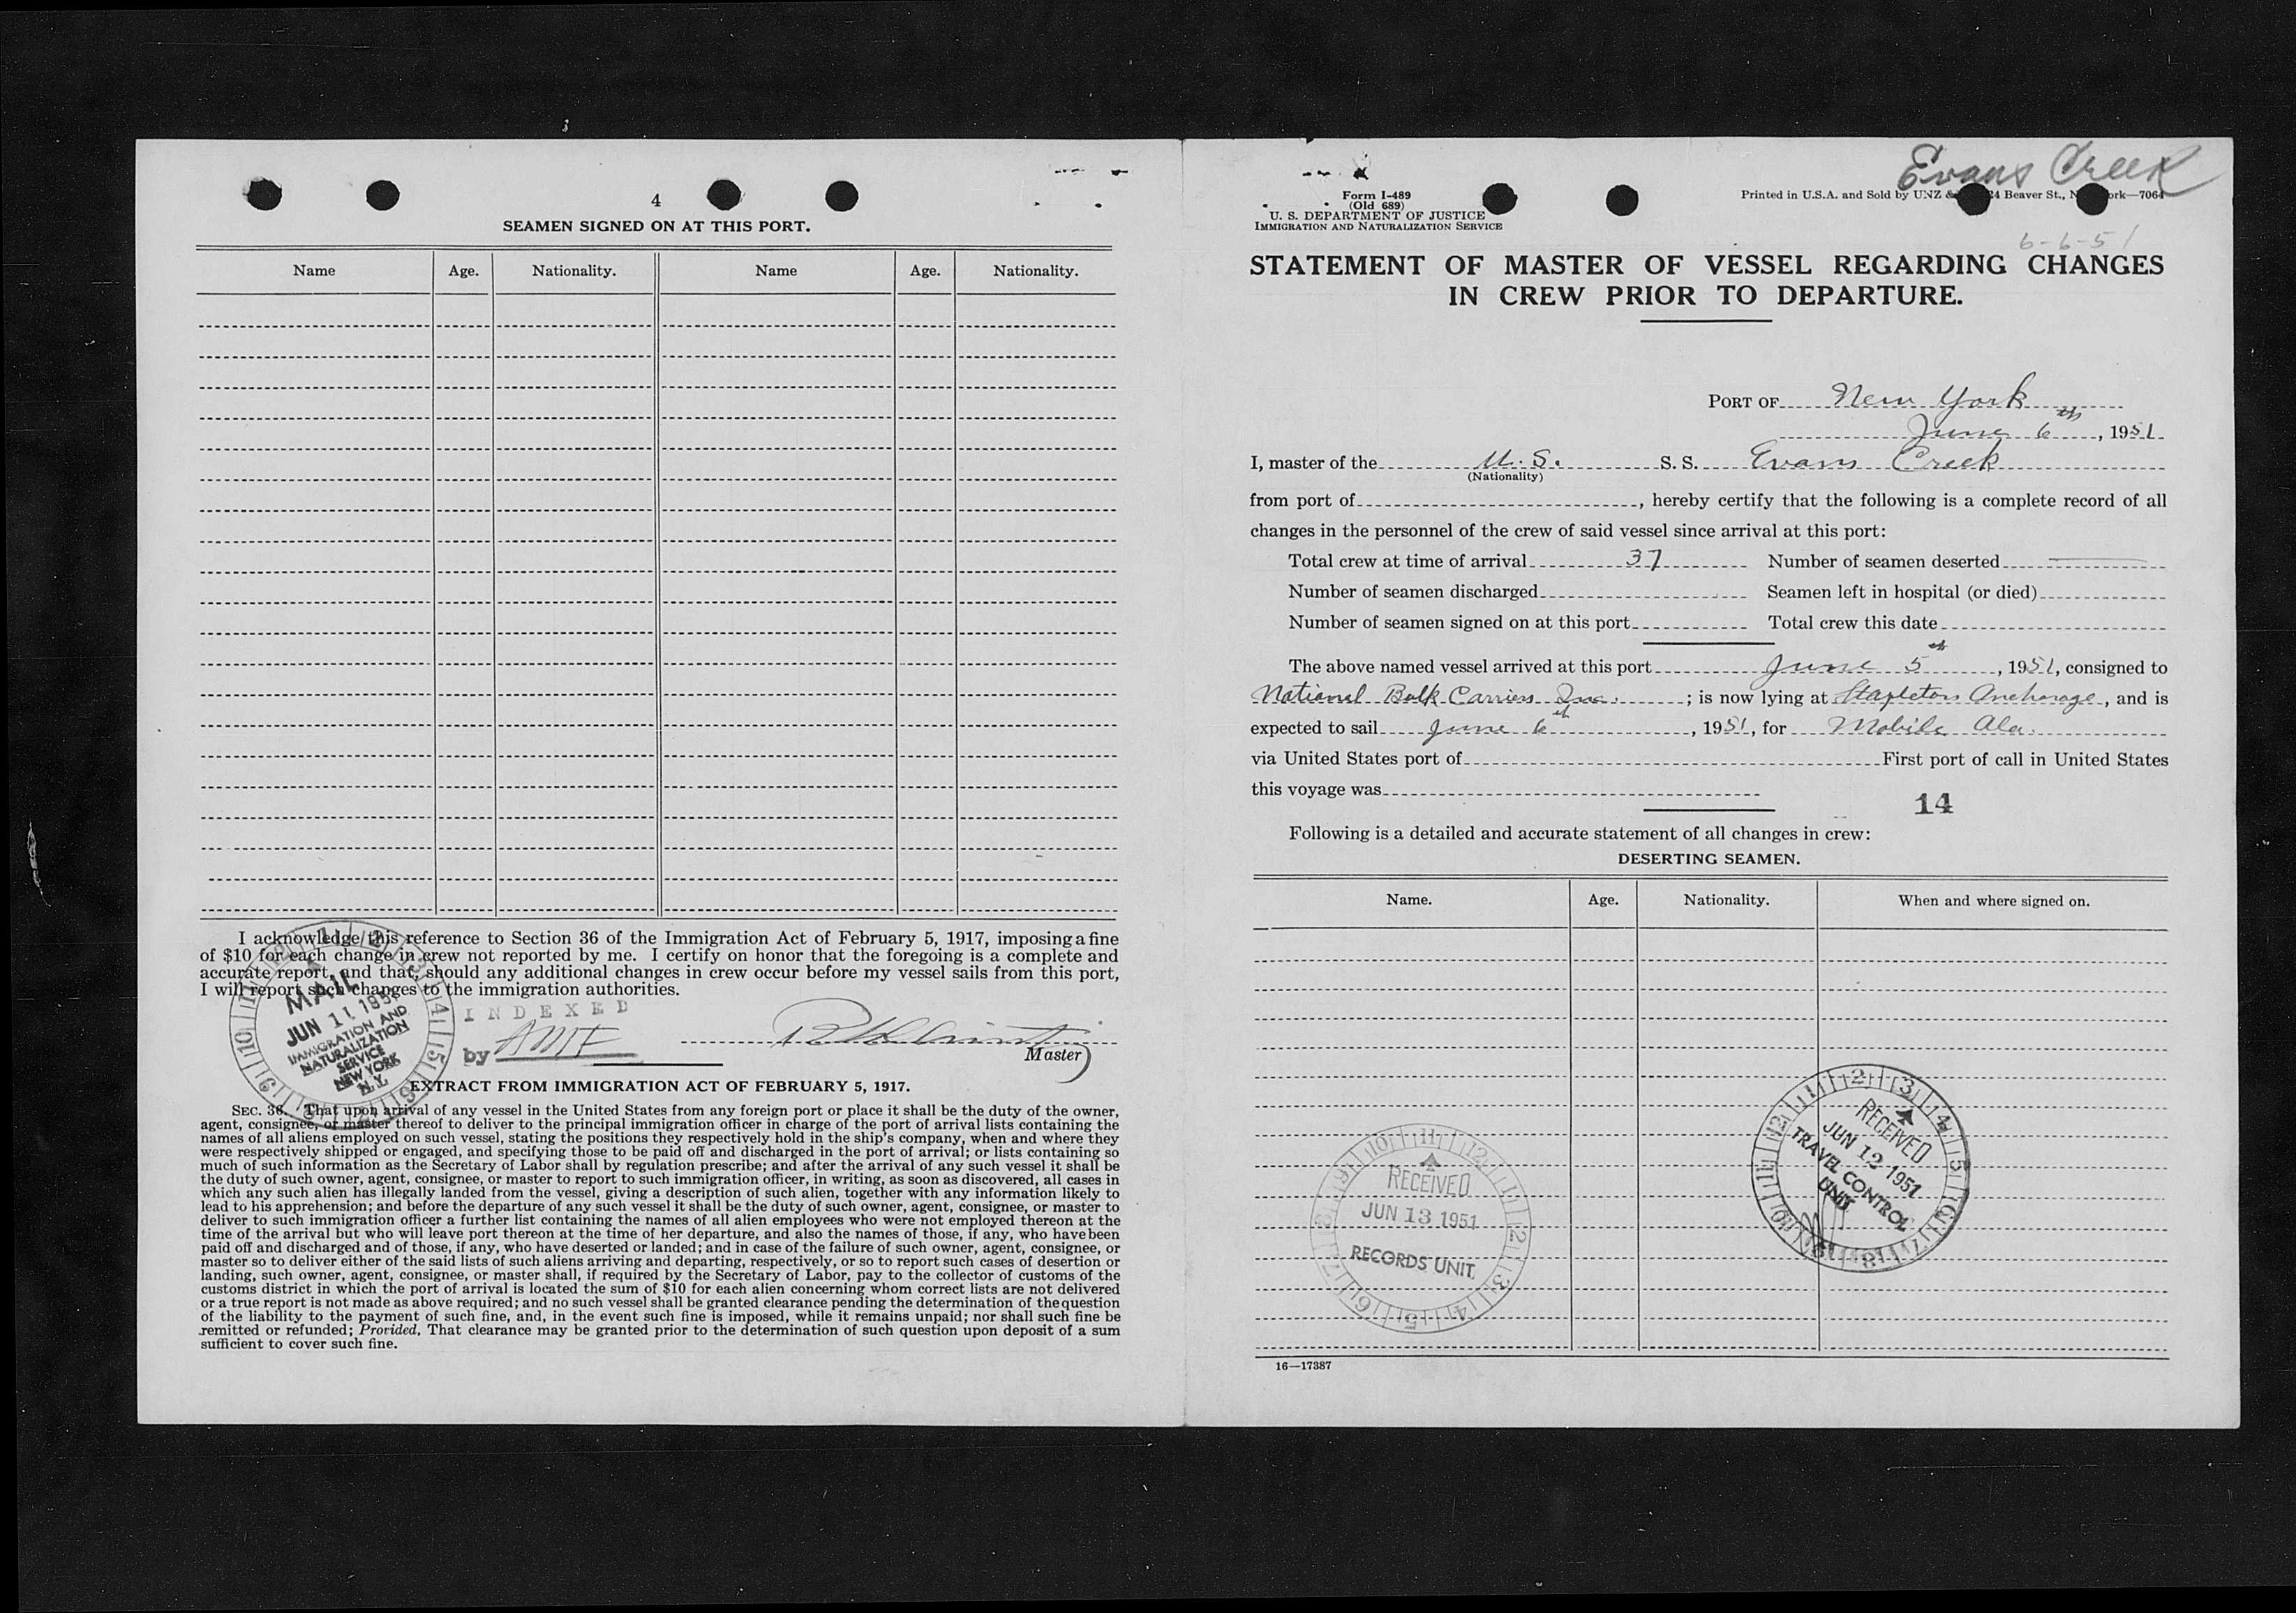 4
SEAMEN SIGNED ON AT THIS PORT.
Name Age. Nationality. Name Age. Nationality.
I acknowledge this reference to Section 36 of the Immigration Act of February 5, 1917, imposing a fine
of $10 for each change in crew not reported by me. I certify on honor that the foregoing is a complete and
accurate report, and that, should any additional changes in crew occur before my vessel sails from this port,
I will report such changes to the immigration authorities.
MAIL
JUN 11 1951
IMMIGRATION AND
NATURALIZATION
SERVICE
NEW YORK
N.Y.
INDEXED
by
Master
EXTRACT FROM IMMIGRATION ACT OF FEBRUARY 5, 1917.
SEC. 36. That upon arrival of any vessel in the United States from any foreign port or place it shall be the duty of the owner,
agent, consignee, or master thereof to deliver to the principal immigration officer in charge of the port of arrival lists containing the
names of all aliens employed on such vessel, stating the positions they respectively hold in the ship's company, when and where they
were respectively shipped or engaged, and specifying those to be paid off and discharged in the port of arrival; or lists containing so
much of such information as the Secretary of Labor shall by regulation prescribe; and after the arrival of any such vessel it shall be
the duty of such owner, agent, consignee, or master to report to such immigration officer, in writing, as soon as discovered, all cases in
which any such alien has illegally landed from the vessel, giving a description of such alien, together with any information likely to
lead to his apprehension; and before the departure of any such vessel it shall be the duty of such owner, agent, consignee, or master to
deliver to such immigration officer a further list containing the names of all alien employees who were not employed thereon at the
time of the arrival but who will leave port thereon at the time of her departure, and also the names of those, if any, who have been
paid off and discharged and of those, if any, who have deserted or landed; and in case of the failure of such owner, agent, consignee, or
master so to deliver either of the said lists of such aliens arriving and departing, respectively, or so to report such cases of desertion or
landing, such owner, agent, consignee, or master shall, if required by the Secretary of Labor, pay to the collector of customs of the
customs district in which the port of arrival is located the sum of $10 for each alien concerning whom correct lists are not delivered
or a true report is not made as above required; and no such vessel shall be granted clearance pending the determination of the question
of the liability to the payment of such fine, and, in the event such fine is imposed, while it remains unpaid; nor shall such fine be
remitted or refunded; Provided, That clearance may be granted prior to the determination of such question upon deposit of a sum
sufficient to cover such fine.
Evans Creek
Form I-489
(Old 689)
U. S. DEPARTMENT OF JUSTICE
IMMIGRATION AND NATURALIZATION SERVICE
Printed in U.S.A. and Sold by UNZ & 24 Beaver St., N ork—7064
6-6-51
STATEMENT OF MASTER OF VESSEL REGARDING CHANGES
IN CREW PRIOR TO DEPARTURE.
PORT OF New York
June 6th, 1951
I, master of the U.S. S. S. Evans Creek
(Nationality)
from port of , hereby certify that the following is a complete record of all
changes in the personnel of the crew of said vessel since arrival at this port:
Total crew at time of arrival 37 Number of seamen deserted —
Number of seamen discharged Seamen left in hospital (or died)
Number of seamen signed on at this port Total crew this date
The above named vessel arrived at this port June 5th, 1951, consigned to
National Bulk Carriers Inc. ; is now lying at Stapleton Anchorage, and is
expected to sail June 6th, 1951, for Mobile Ala.
via United States port of First port of call in United States
this voyage was
14
Following is a detailed and accurate statement of all changes in crew:
DESERTING SEAMEN.
Name. Age. Nationality. When and where signed on.
RECEIVED
JUN 12 1951
TRAVEL CONTROL
UNIT
RECEIVED
JUN 13 1951
RECORDS UNIT
16—17387